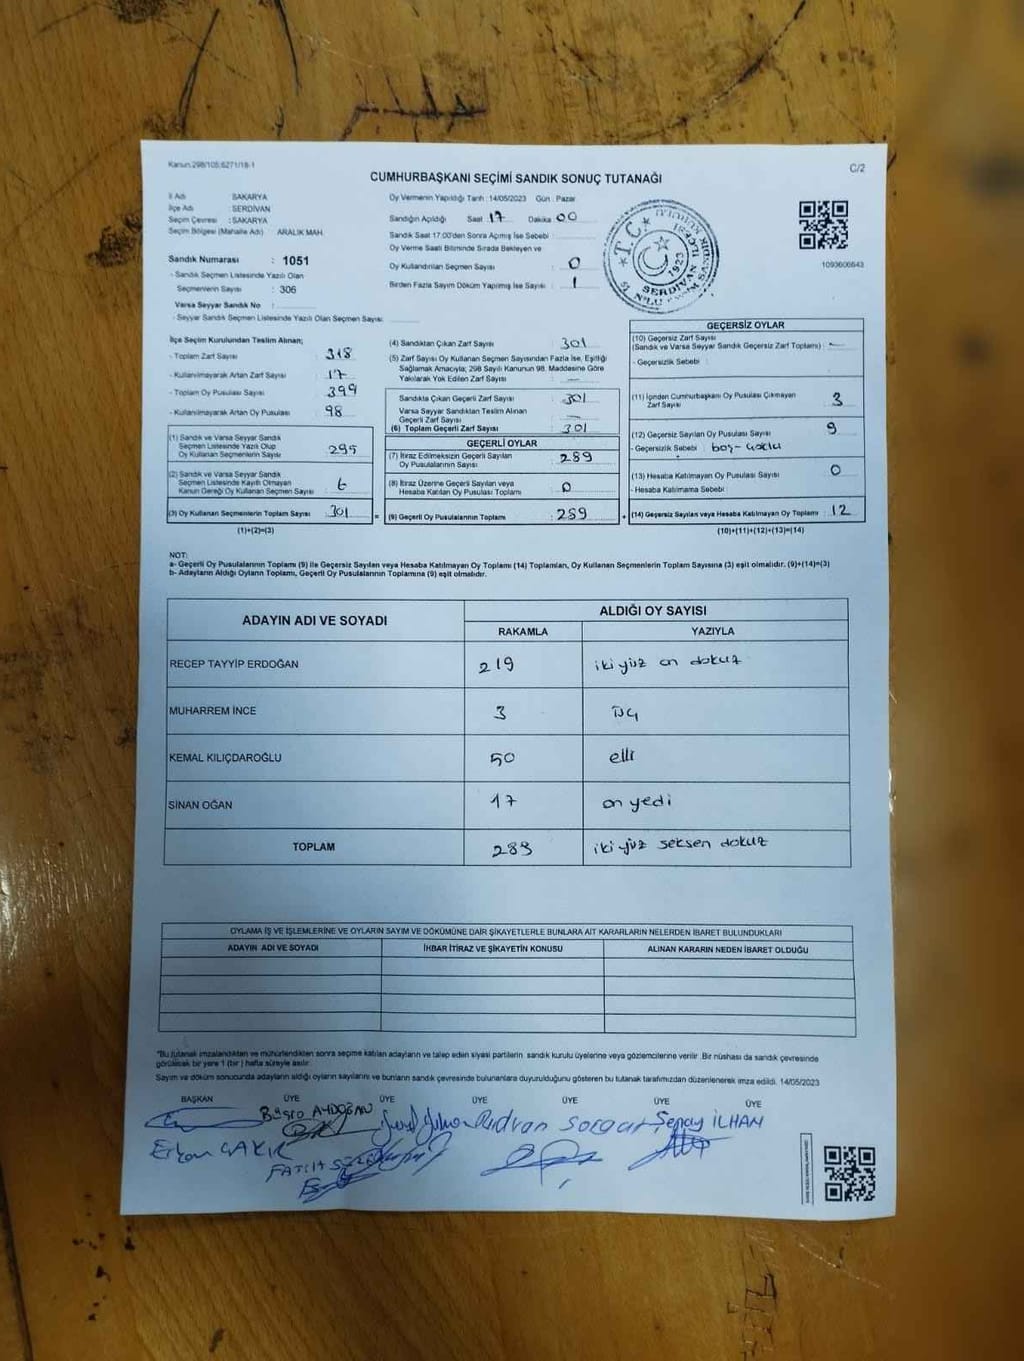 Kanun 298/105;6271/18-1
C/2
CUMHURBAŞKANI SEÇİMİ SANDIK SONUÇ TUTANAĞI
İl Adı SAKARYA
İlçe Adı : SERDİVAN
Seçim Çevresi : SAKARYA
Seçim Bölgesi (Mahalle Adı) ARALIK MAH.
Sandık Numarası : 1051
- Sandık Seçmen Listesinde Yazılı Olan
Seçmenlerin Sayısı : 306
Varsa Seyyar Sandık No :
- Seyyar Sandık Seçmen Listesinde Yazılı Olan Seçmen Sayısı
Oy Vermenin Yapıldığı Tarih : 14/05/2023 Gün : Pazar
Sandığın Açıldığı Saat 17 Dakika 00
Sandık Saat 17:00'den Sonra Açılmış İse Sebebi :
Oy Verme Saati Bitiminde Sırada Bekleyen ve
Oy Kullandırılan Seçmen Sayısı : 0
Birden Fazla Sayım Döküm Yapılmış İse Sayısı : 1
T.C.
SERDİVAN
1923
1093606643
İlçe Seçim Kurulundan Teslim Alınan;
- Toplam Zarf Sayısı : 318
- Kullanılmayarak Artan Zarf Sayısı : 17
- Toplam Oy Pusulası Sayısı : 399
- Kullanılmayarak Artan Oy Pusulası : 98
(1) Sandık ve Varsa Seyyar Sandık
Seçmen Listesinde Yazılı Olup
Oy Kullanan Seçmenlerin Sayısı : 295
(2) Sandık ve Varsa Seyyar Sandık
Seçmen Listesinde Kayıtlı Olmayan
Kanun Gereği Oy Kullanan Seçmen Sayısı : 6
(3) Oy Kullanan Seçmenlerin Toplam Sayısı : 301
(1)+(2)=(3)
(4) Sandıktan Çıkan Zarf Sayısı : 301
(5) Zarf Sayısı Oy Kullanan Seçmen Sayısından Fazla İse, Eşitliği
Sağlamak Amacıyla; 298 Sayılı Kanunun 98. Maddesine Göre
Yakılarak Yok Edilen Zarf Sayısı : —
Sandıkta Çıkan Geçerli Zarf Sayısı : 301
Varsa Seyyar Sandıktan Teslim Alınan
Geçerli Zarf Sayısı : —
(6) Toplam Geçerli Zarf Sayısı : 301
GEÇERLİ OYLAR
(7) İtiraz Edilmeksizin Geçerli Sayılan
Oy Pusulalarının Sayısı : 289
(8) İtiraz Üzerine Geçerli Sayılan veya
Hesaba Katılan Oy Pusulası Toplamı : 0
= (9) Geçerli Oy Pusulalarının Toplamı : 289 +
GEÇERSİZ OYLAR
(10) Geçersiz Zarf Sayısı
(Sandık ve Varsa Seyyar Sandık Geçersiz Zarf Toplamı) : —
- Geçersizlik Sebebi :
(11) İçinden Cumhurbaşkanı Oy Pusulası Çıkmayan
Zarf Sayısı : 3
(12) Geçersiz Sayılan Oy Pusulası Sayısı : 9
- Geçersizlik Sebebi : boş-
(13) Hesaba Katılmayan Oy Pusulası Sayısı : 0
- Hesaba Katılmama Sebebi :
(14) Geçersiz Sayılan veya Hesaba Katılmayan Oy Toplamı : 12
(10)+(11)+(12)+(13)=(14)
NOT:
a- Geçerli Oy Pusulalarının Toplamı (9) ile Geçersiz Sayılan veya Hesaba Katılmayan Oy Toplamı (14) Toplamları, Oy Kullanan Seçmenlerin Toplam Sayısına (3) eşit olmalıdır. (9)+(14)=(3)
b- Adayların Aldığı Oyların Toplamı, Geçerli Oy Pusulalarının Toplamına (9) eşit olmalıdır.
ADAYIN ADI VE SOYADI ALDIĞI OY SAYISI
RAKAMLA YAZIYLA
RECEP TAYYİP ERDOĞAN 219 iki yüz on dokuz
MUHARREM İNCE 3 üç
KEMAL KILIÇDAROĞLU 50 elli
SİNAN OĞAN 17 on yedi
TOPLAM 289 iki yüz seksen dokuz
OYLAMA İŞ VE İŞLEMLERİNE VE OYLARIN SAYIM VE DÖKÜMÜNE DAİR ŞİKAYETLERLE BUNLARA AİT KARARLARIN NELERDEN İBARET BULUNDUKLARI
ADAYIN ADI VE SOYADI İHBAR İTİRAZ VE ŞİKAYETİN KONUSU ALINAN KARARIN NEDEN İBARET OLDUĞU
"Bu tutanak imzalandıktan ve mühürlendikten sonra seçime katılan adayların ve talep eden siyasi partilerin sandık kurulu üyelerine veya gözlemcilerine verilir. Bir nüshası da sandık çevresinde
görülecek bir yere 1 (bir) hafta süreyle asılır.
Sayım ve döküm sonucunda adayların aldığı oyların sayılarını ve bunların sandık çevresinde bulunanlara duyurulduğunu gösteren bu tutanak tarafımızdan düzenlenerek imza edildi. 14/05/2023
BAŞKAN ÜYE ÜYE ÜYE ÜYE ÜYE ÜYE
Büşra AYDOĞAN Rıdvan Şenay İLHAN
Erkan ÇAKIR
FATİH